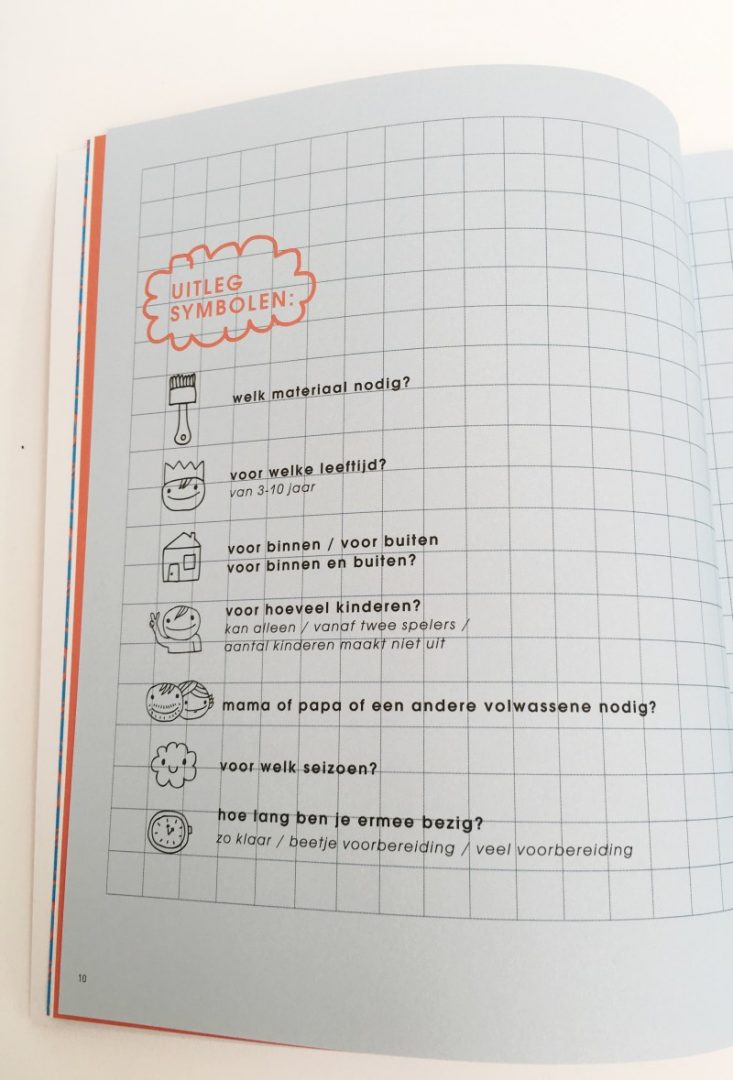 UITLEG
SYMBOLEN:
welk materiaal nodig?
voor welke leeftijd?
van 3-10 jaar
voor binnen / voor buiten
voor binnen en buiten?
voor hoeveel kinderen?
kan alleen / vanaf twee spelers /
aantal kinderen maakt niet uit
mama of papa of een andere volwassene nodig?
voor welk seizoen?
hoe lang ben je ermee bezig?
zo klaar / beetje voorbereiding / veel voorbereiding
10